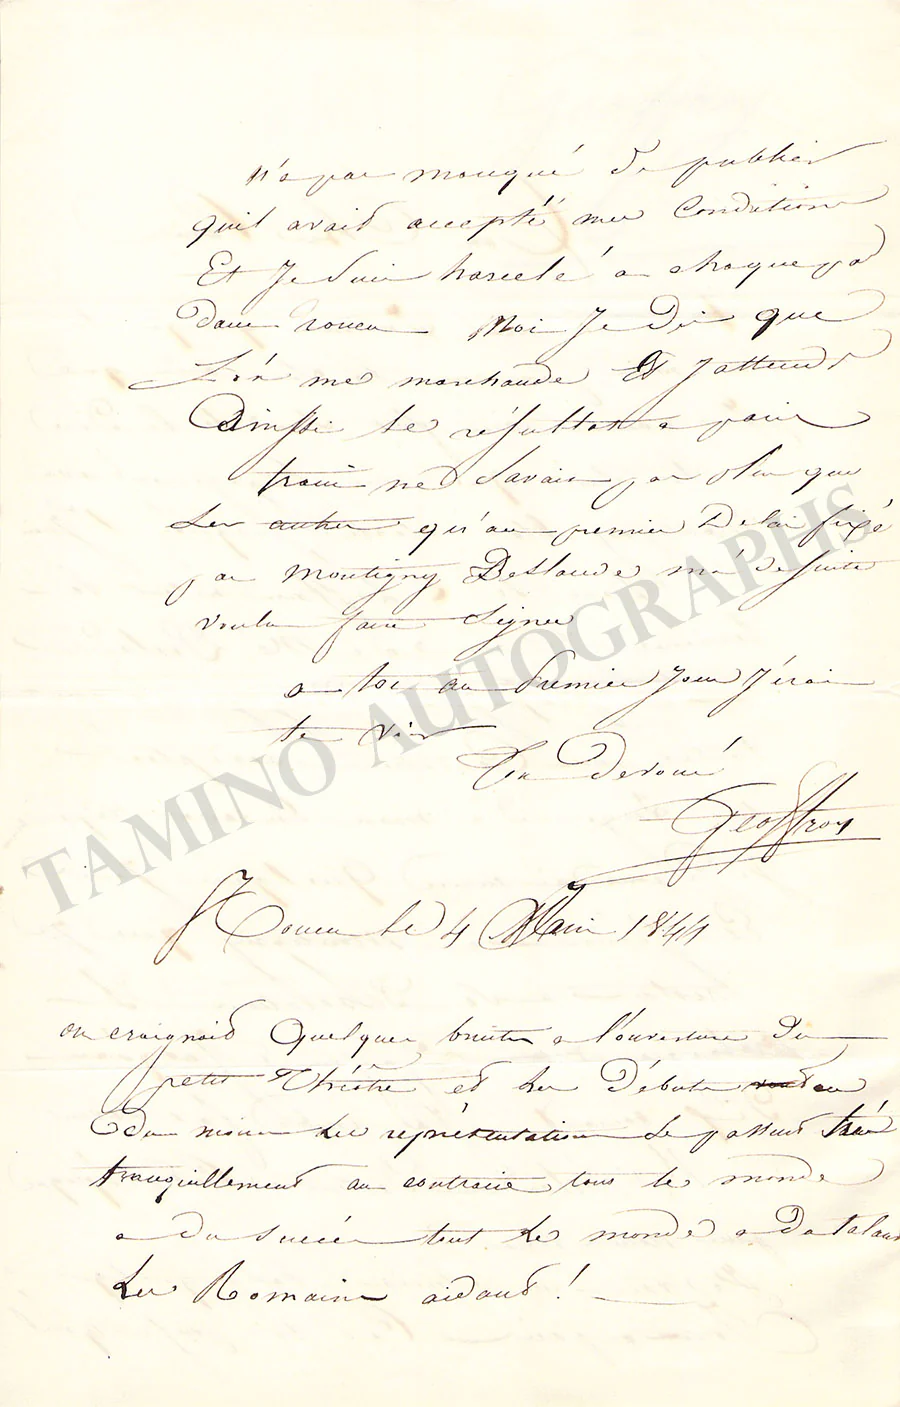 n'a pas manqué de publier
quil avait accepté mes Conditions
Et Je Suis harcelé a chaque pas
dans rouen Moi Je Dis que
L'on me marchande Et J'attends
Ainssi le résultat a paris
ne Savais pas plus que
Les autres qu'au premier Delai fixé
par Montigny Deslande m'a de suite
voulu faire Signer
a toi au Premier Jour J'érai
te voir
Ton Devoué
Geoffroy
Rouen le 4 Mai 1844
on craignait Quelques bruits a l'ouverture Du
petit Théâtre et Les Débuts
Du moins Les représentations Se passent très
tranquillement au contraire tous le monde
a du succès tout Le monde a Du talent
Les Romains aidant !
TAMINO AUTOGRAPHS